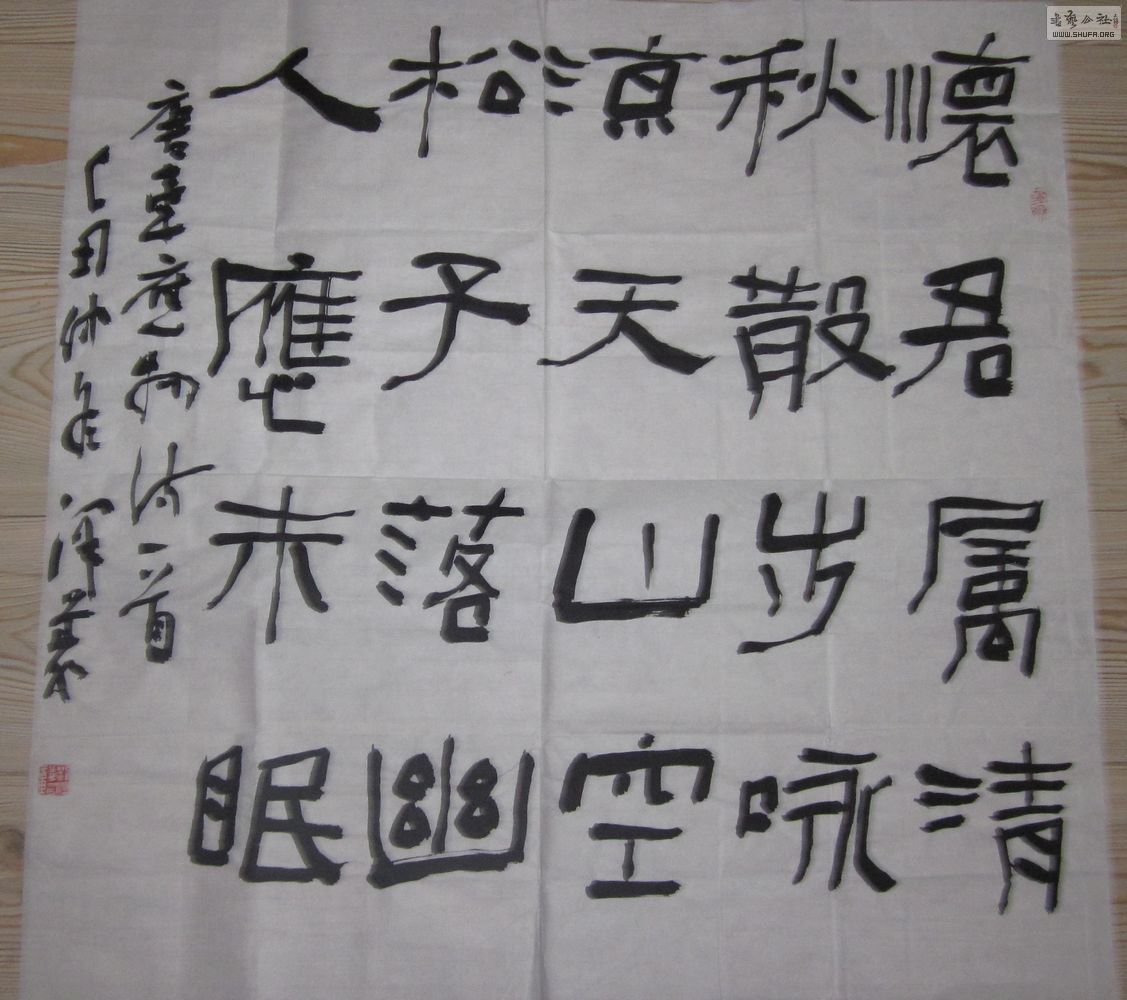 懷君属清
秋散步咏
涼天山空
松子落幽
人應未眠
唐韋應物詩一首
己丑仲
書藝公社
WWW.SHUFA.ORG